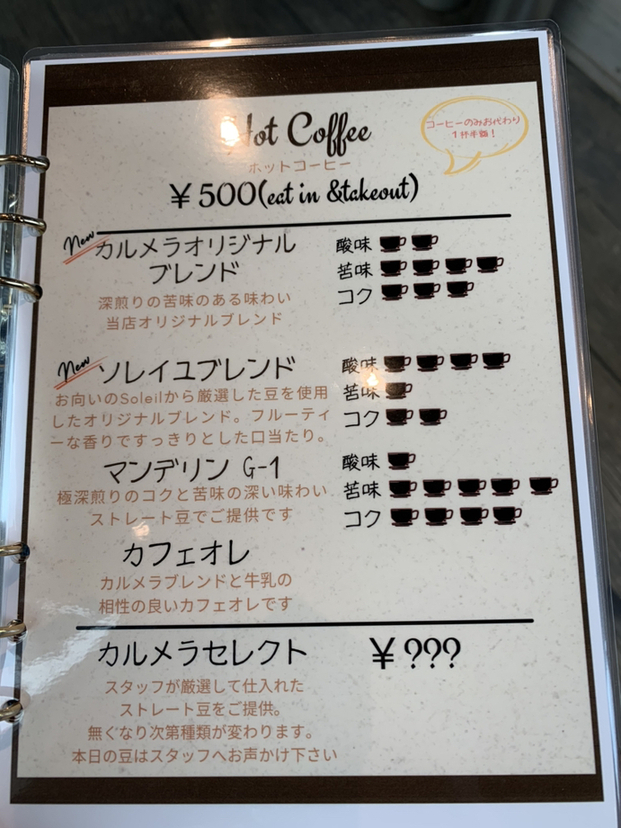 Hot Coffee
ホットコーヒー
¥500(eat in &takeout)
コーヒーのみお代わり
1杯半額!
New
カルメラオリジナル
ブレンド
深煎りの苦味のある味わい
当店オリジナルブレンド
酸味
苦味
コク
New
ソレイユブレンド
お向いのSoleilから厳選した豆を使用
したオリジナルブレンド。フルーティ
ーな香りですっきりとした口当たり。
酸味
苦味
コク
マンデリン G-1
極深煎りのコクと苦味の深い味わい
ストレート豆でご提供です
酸味
苦味
コク
カフェオレ
カルメラブレンドと牛乳の
相性の良いカフェオレです
カルメラセレクト ¥???
スタッフが厳選して仕入れた
ストレート豆をご提供。
無くなり次第種類が変わります。
本日の豆はスタッフへお声かけ下さい